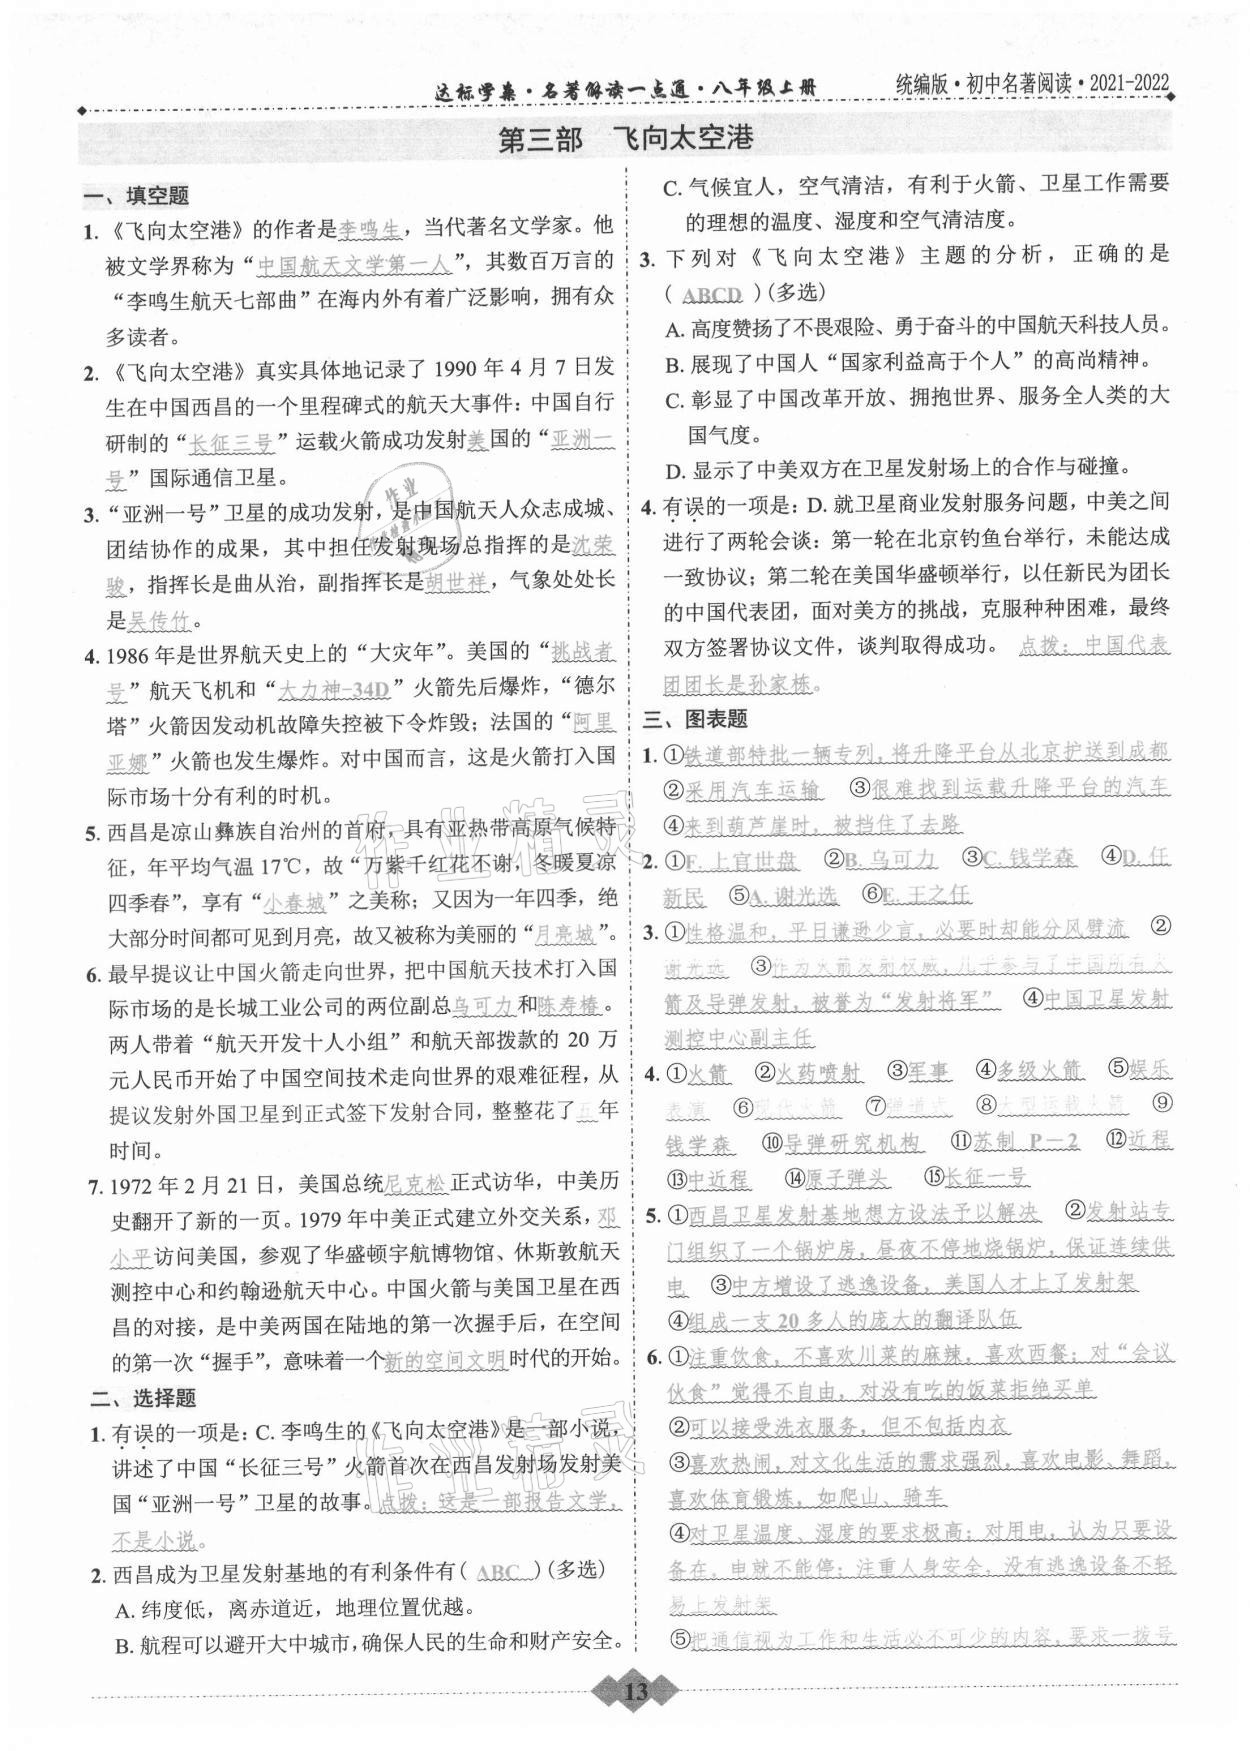 达标学案·名著解读一点通·八年级上册
统编版·初中名著阅读·2021-2022
第三部 飞向太空港
一、填空题
1.《飞向太空港》的作者是李鸣生，当代著名文学家。他
被文学界称为“中国航天文学第一人”，其数百万言的
“李鸣生航天七部曲”在海内外有着广泛影响，拥有众
多读者。
2.《飞向太空港》真实具体地记录了 1990 年 4 月 7 日发
生在中国西昌的一个里程碑式的航天大事件：中国自行
研制的“长征三号”运载火箭成功发射美国的“亚洲一
号”国际通信卫星。
3.“亚洲一号”卫星的成功发射，是中国航天人众志成城、
团结协作的成果，其中担任发射现场总指挥的是沈荣
骏，指挥长是曲从治，副指挥长是胡世祥，气象处处长
是吴传竹。
4. 1986 年是世界航天史上的“大灾年”。美国的“挑战者
号”航天飞机和“大力神-34D”火箭先后爆炸，“德尔
塔”火箭因发动机故障失控被下令炸毁；法国的“阿里
亚娜”火箭也发生爆炸。对中国而言，这是火箭打入国
际市场十分有利的时机。
5. 西昌是凉山彝族自治州的首府，具有亚热带高原气候特
征，年平均气温 17℃，故“万紫千红花不谢，冬暖夏凉
四季春”，享有“小春城”之美称；又因为一年四季，绝
大部分时间都可见到月亮，故又被称为美丽的“月亮城”。
6. 最早提议让中国火箭走向世界，把中国航天技术打入国
际市场的是长城工业公司的两位副总乌可力和陈寿椿。
两人带着“航天开发十人小组”和航天部拨款的 20 万
元人民币开始了中国空间技术走向世界的艰难征程，从
提议发射外国卫星到正式签下发射合同，整整花了五年
时间。
7. 1972 年 2 月 21 日，美国总统尼克松正式访华，中美历
史翻开了新的一页。1979 年中美正式建立外交关系，邓
小平访问美国，参观了华盛顿宇航博物馆、休斯敦航天
测控中心和约翰逊航天中心。中国火箭与美国卫星在西
昌的对接，是中美两国在陆地的第一次握手后，在空间
的第一次“握手”，意味着一个新的空间文明时代的开始。
二、选择题
1. 有误的一项是：C. 李鸣生的《飞向太空港》是一部小说，
讲述了中国“长征三号”火箭首次在西昌发射场发射美
国“亚洲一号”卫星的故事。点拨：这是一部报告文学，
不是小说。
2. 西昌成为卫星发射基地的有利条件有( ABC )(多选)
A. 纬度低，离赤道近，地理位置优越。
B. 航程可以避开大中城市，确保人民的生命和财产安全。
C. 气候宜人，空气清洁，有利于火箭、卫星工作需要
的理想的温度、湿度和空气清洁度。
3. 下列对《飞向太空港》主题的分析，正确的是
( ABCD )(多选)
A. 高度赞扬了不畏艰险、勇于奋斗的中国航天科技人员。
B. 展现了中国人“国家利益高于个人”的高尚精神。
C. 彰显了中国改革开放、拥抱世界、服务全人类的大
国气度。
D. 显示了中美双方在卫星发射场上的合作与碰撞。
4. 有误的一项是：D. 就卫星商业发射服务问题，中美之间
进行了两轮会谈：第一轮在北京钓鱼台举行，未能达成
一致协议；第二轮在美国华盛顿举行，以任新民为团长
的中国代表团，面对美方的挑战，克服种种困难，最终
双方签署协议文件，谈判取得成功。 点拨：中国代表
团团长是孙家栋。
三、图表题
1. ①铁道部特批一辆专列，将升降平台从北京护送到成都
②采用汽车运输 ③很难找到运载升降平台的汽车
④来到葫芦崖时，被挡住了去路
2. ①F. 上官世盘 ②B. 乌可力 ③C. 钱学森 ④D. 任
新民 ⑤A. 谢光选 ⑥E. 王之任
3. ①性格温和，平日谦逊少言，必要时却能分风劈流 ②
谢光选 ③作为火箭发射权威，几乎参与了中国所有火
箭及导弹发射，被誉为“发射将军” ④中国卫星发射
测控中心副主任
4. ①火箭 ②火药喷射 ③军事 ④多级火箭 ⑤娱乐
表演 ⑥现代火箭 ⑦弹道式 ⑧大型运载火箭 ⑨
钱学森 ⑩导弹研究机构 ⑪苏制 P－2 ⑫近程
⑬中近程 ⑭原子弹头 ⑮长征一号
5. ①西昌卫星发射基地想方设法予以解决 ②发射站专
门组织了一个锅炉房，昼夜不停地烧锅炉，保证连续供
电 ③中方增设了逃逸设备，美国人才上了发射架
④组成一支 20 多人的庞大的翻译队伍
6. ①注重饮食，不喜欢川菜的麻辣，喜欢西餐；对“会议
伙食”觉得不自由，对没有吃的饭菜拒绝买单
②可以接受洗衣服务，但不包括内衣
③喜欢热闹，对文化生活的需求强烈，喜欢电影、舞蹈，
喜欢体育锻炼，如爬山、骑车
④对卫星温度、湿度的要求极高；对用电，认为只要设
备在，电就不能停；注重人身安全，没有逃逸设备不轻
易上发射架
⑤把通信视为工作和生活必不可少的内容，要求一拨号
13
作业精灵
作业精灵